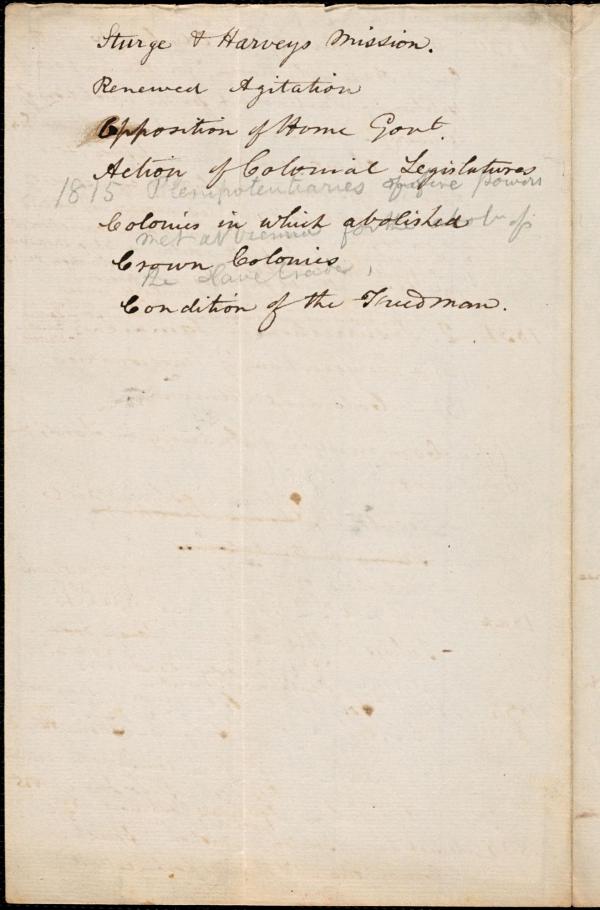 Sturge & Harveys Mission.
Renewed Agitation
Opposition of Home Govt.
Action of Colonial Legislatures
1815 Plenipotentiaries of five powers
Colonies in which abolished
met at Vienna for the of
Crown Colonies
the Slave trade,
Condition of the Freedman.